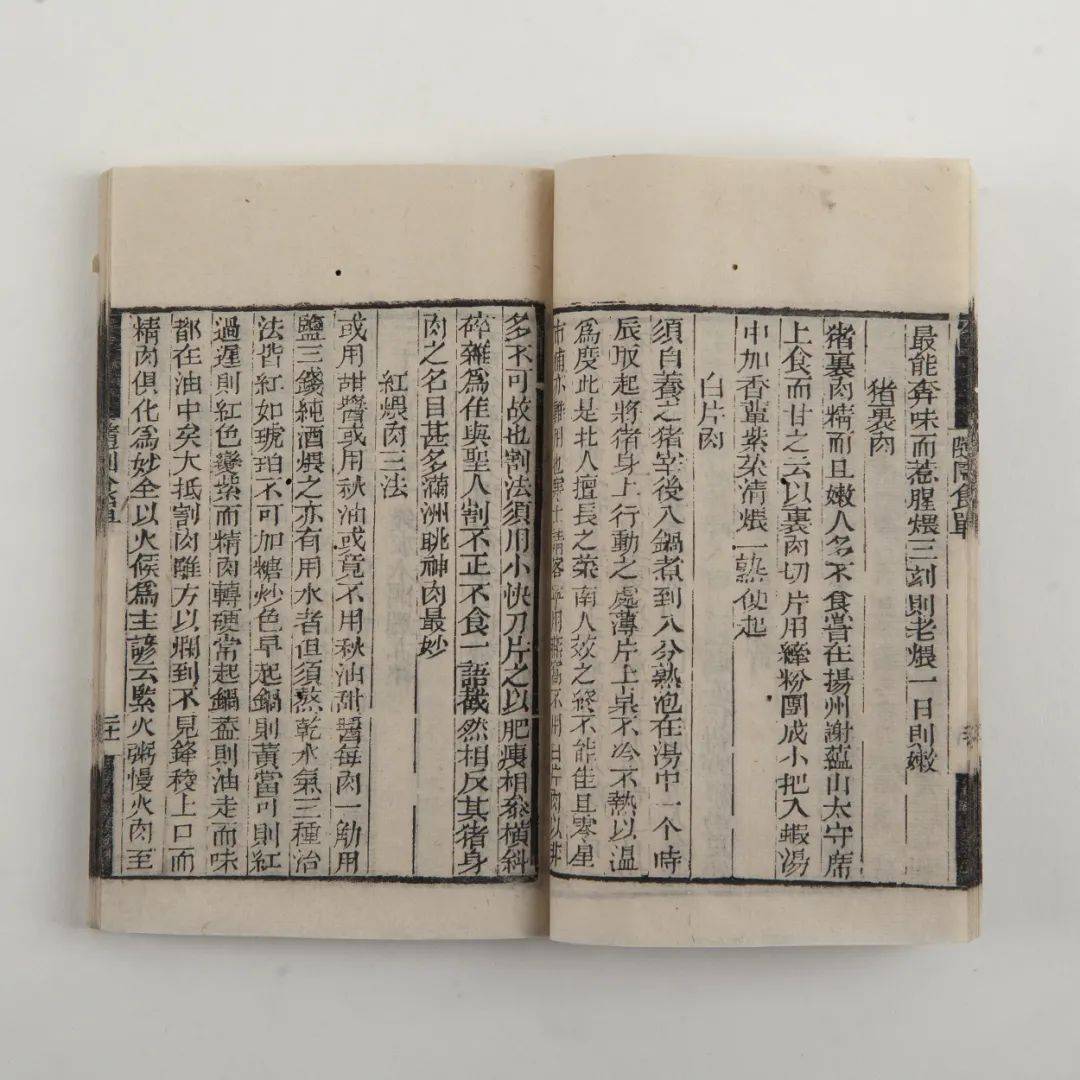 隨園食單
最能奪味而惹腥煨三刻則老煨一日則嫩
猪裏肉
猪裏肉精而且嫩人多不食嘗在揚州謝藴山太守席
上食而甘之云以裏肉切片用縴粉團成小把入蝦湯
中加香蕈紫菜清煨一熟便起
白片肉
須自養之猪宰後入鍋煮到八分熟泡在湯中一个時
辰取起將猪身上行動之處薄片上桌不冷不熱以温
為度此是北人擅長之菜南人效之終不能佳且零星
市脯亦難用也寒士請客寧用燕窩不用白片肉以非
多不可故也割法須用小快刀片之以肥瘦相叅橫斜
碎雜為佳與聖人割不正不食一語截然相反其猪身
肉之名目甚多滿洲跳神肉最妙
紅煨肉三法
或用甜醬或用秋油或竟不用秋油甜醬每肉一觔用
鹽三錢純酒煨之亦有用水者但須熬乾水氣三種治
法皆紅如琥珀不可加糖炒色早起鍋則黃當可則紅
過遲則紅色變紫而精肉轉硬常起鍋蓋則油走而味
都在油中矣大抵割肉雖方以爛到不見鋒稜上口而
精肉俱化為妙全以火候為主諺云緊火粥慢火肉至